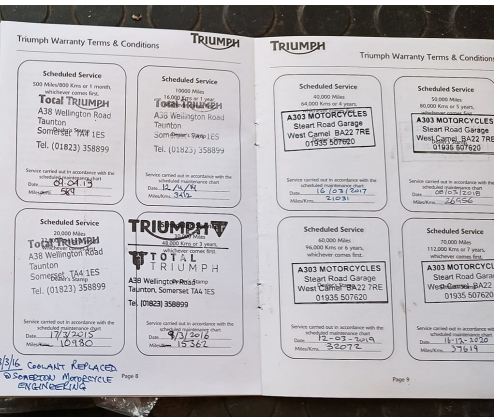 Triumph Warranty Terms & Conditions
TRIUMPH
Scheduled Service
500 Miles/800 Kms or 1 month,
whichever comes first.
Total TRIUMPH
A38 Wellington Road
Taunton
Somerset TA4 1ES
Tel. (01823) 358899
Service carried out in accordance with the
scheduled maintenance chart
Date 09.04.13
Miles/Kms 589
Scheduled Service
10000 Miles
16,000 Kms or 1 year
Total TRIUMPH
A38 Wellington Road
Taunton
Somerset TA4 1ES
Tel. (01823) 358899
Service carried out in accordance with the
scheduled maintenance chart
Date 12/4/14
Miles/Kms
Scheduled Service
20,000 Miles
Total TRIUMPH
whichever comes first
A38 Wellington Road
Taunton
Somerset TA4 1ES
Dealer's Stamp
Tel. (01823) 358899
Service carried out in accordance with the
scheduled maintenance chart
Date 17/3/2015
Miles/Kms 10980
TRIUMPH
48,000 Kms or 3 years,
whichever comes first.
TOTAL
TRIUMPH
A38 Wellington Road
Dealer's Stamp
Taunton, Somerset TA4 1ES
Tel. (01823) 358899
Service carried out in accordance with the
scheduled maintenance chart
Date 9/3/2016
Miles/Kms 15362
3/16 COOLANT REPLACED
@ SOMERTON MOTORCYCLE
ENGINEERING
Page 8
TRIUMPH
Triumph Warranty Terms & Conditions
Scheduled Service
40,000 Miles
64,000 Kms or 4 years,
whichever comes first.
A303 MOTORCYCLES
Steart Road Garage
West Camel BA22 7RE
01935 507620
Service carried out in accordance with the
scheduled maintenance chart
Date 16/03/2017
Miles/Kms 21031
Scheduled Service
50,000 Miles
80,000 Kms or 5 years,
whichever comes first.
A303 MOTORCYCLES
Steart Road Garage
West Camel BA22 7RE
01935 507620
Service carried out in accordance with the
scheduled maintenance chart
Date 08/03/2018
Miles/Kms 26956
Scheduled Service
60,000 Miles
96,000 Kms or 6 years,
whichever comes first.
A303 MOTORCYCLES
Steart Road Garage
West Camel BA22 7RE
01935 507620
Service carried out in accordance with the
scheduled maintenance chart
Date 12-03-2019
Miles/Kms 32072
Scheduled Service
70,000 Miles
112,000 Kms or 7 years,
whichever comes first.
A303 MOTORCYCLES
Steart Road Garage
West Camel BA22 7RE
01935 507620
Service carried out in accordance with the
scheduled maintenance chart
Date 16-12-2020
Miles/Kms 37619
Page 9